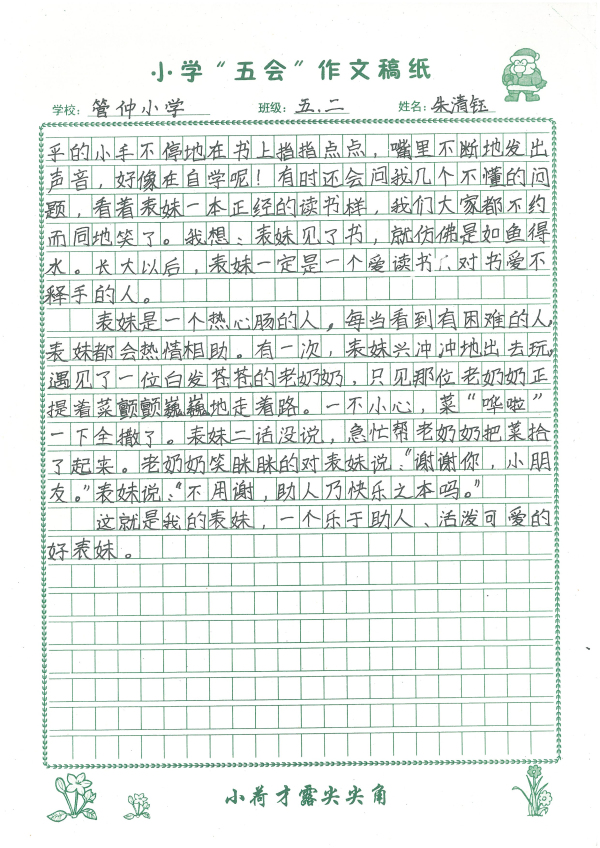 小学“五会”作文稿纸
学校：管仲小学 班级：五.二 姓名：朱清钰
乎的小手不停地在书上指指点点，嘴里不断地发出
声音，好像在自学呢！有时还会问我几个不懂的问
题，看着表妹一本正经的读书样，我们大家都不约
而同地笑了。我想：表妹见了书，就仿佛是如鱼得
水。长大以后，表妹一定是一个爱读书，对书爱不
释手的人。
表妹是一个热心肠的人，每当看到有困难的人，
表妹都会热情相助。有一次，表妹兴冲冲地出去玩，
遇见了一位白发苍苍的老奶奶，只见那位老奶奶正
提着菜颤颤巍巍地走着路。一不小心，菜“哗啦”
一下全撒了。表妹二话没说，急忙帮老奶奶把菜拾
了起来。老奶奶笑眯眯的对表妹说：“谢谢你，小朋
友。”表妹说：“不用谢，助人乃快乐之本吗。”
这就是我的表妹，一个乐于助人、活泼可爱的
好表妹。
小荷才露尖尖角